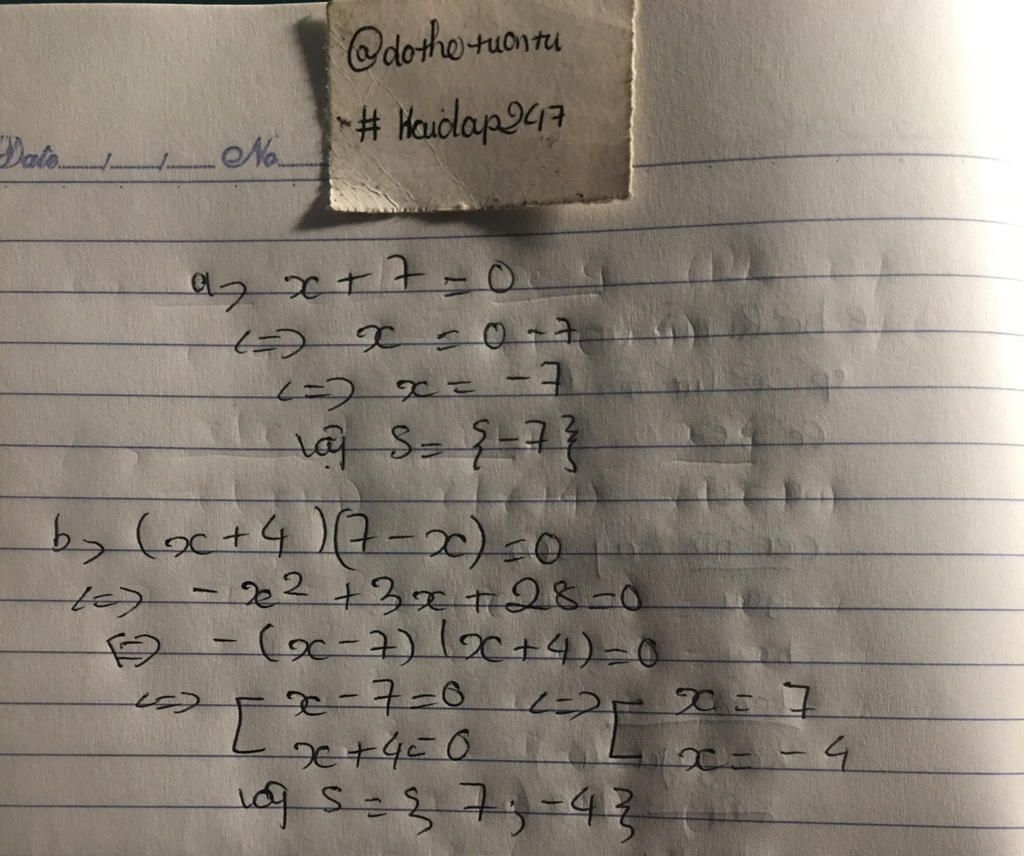 @dothetuantu
# Hoidap247
Date / / No
a, x + 7 = 0
<=> x = 0 - 7
<=> x = -7
Vậy S = {-7}
b, (x + 4)(7 - x) = 0
<=> - x² + 3x + 28 = 0
<=> - (x - 7) (x + 4) = 0
<=> [ x - 7 = 0 <=> [ x = 7
x + 4 = 0 x = - 4
Vậy S = { 7 ; -4 }